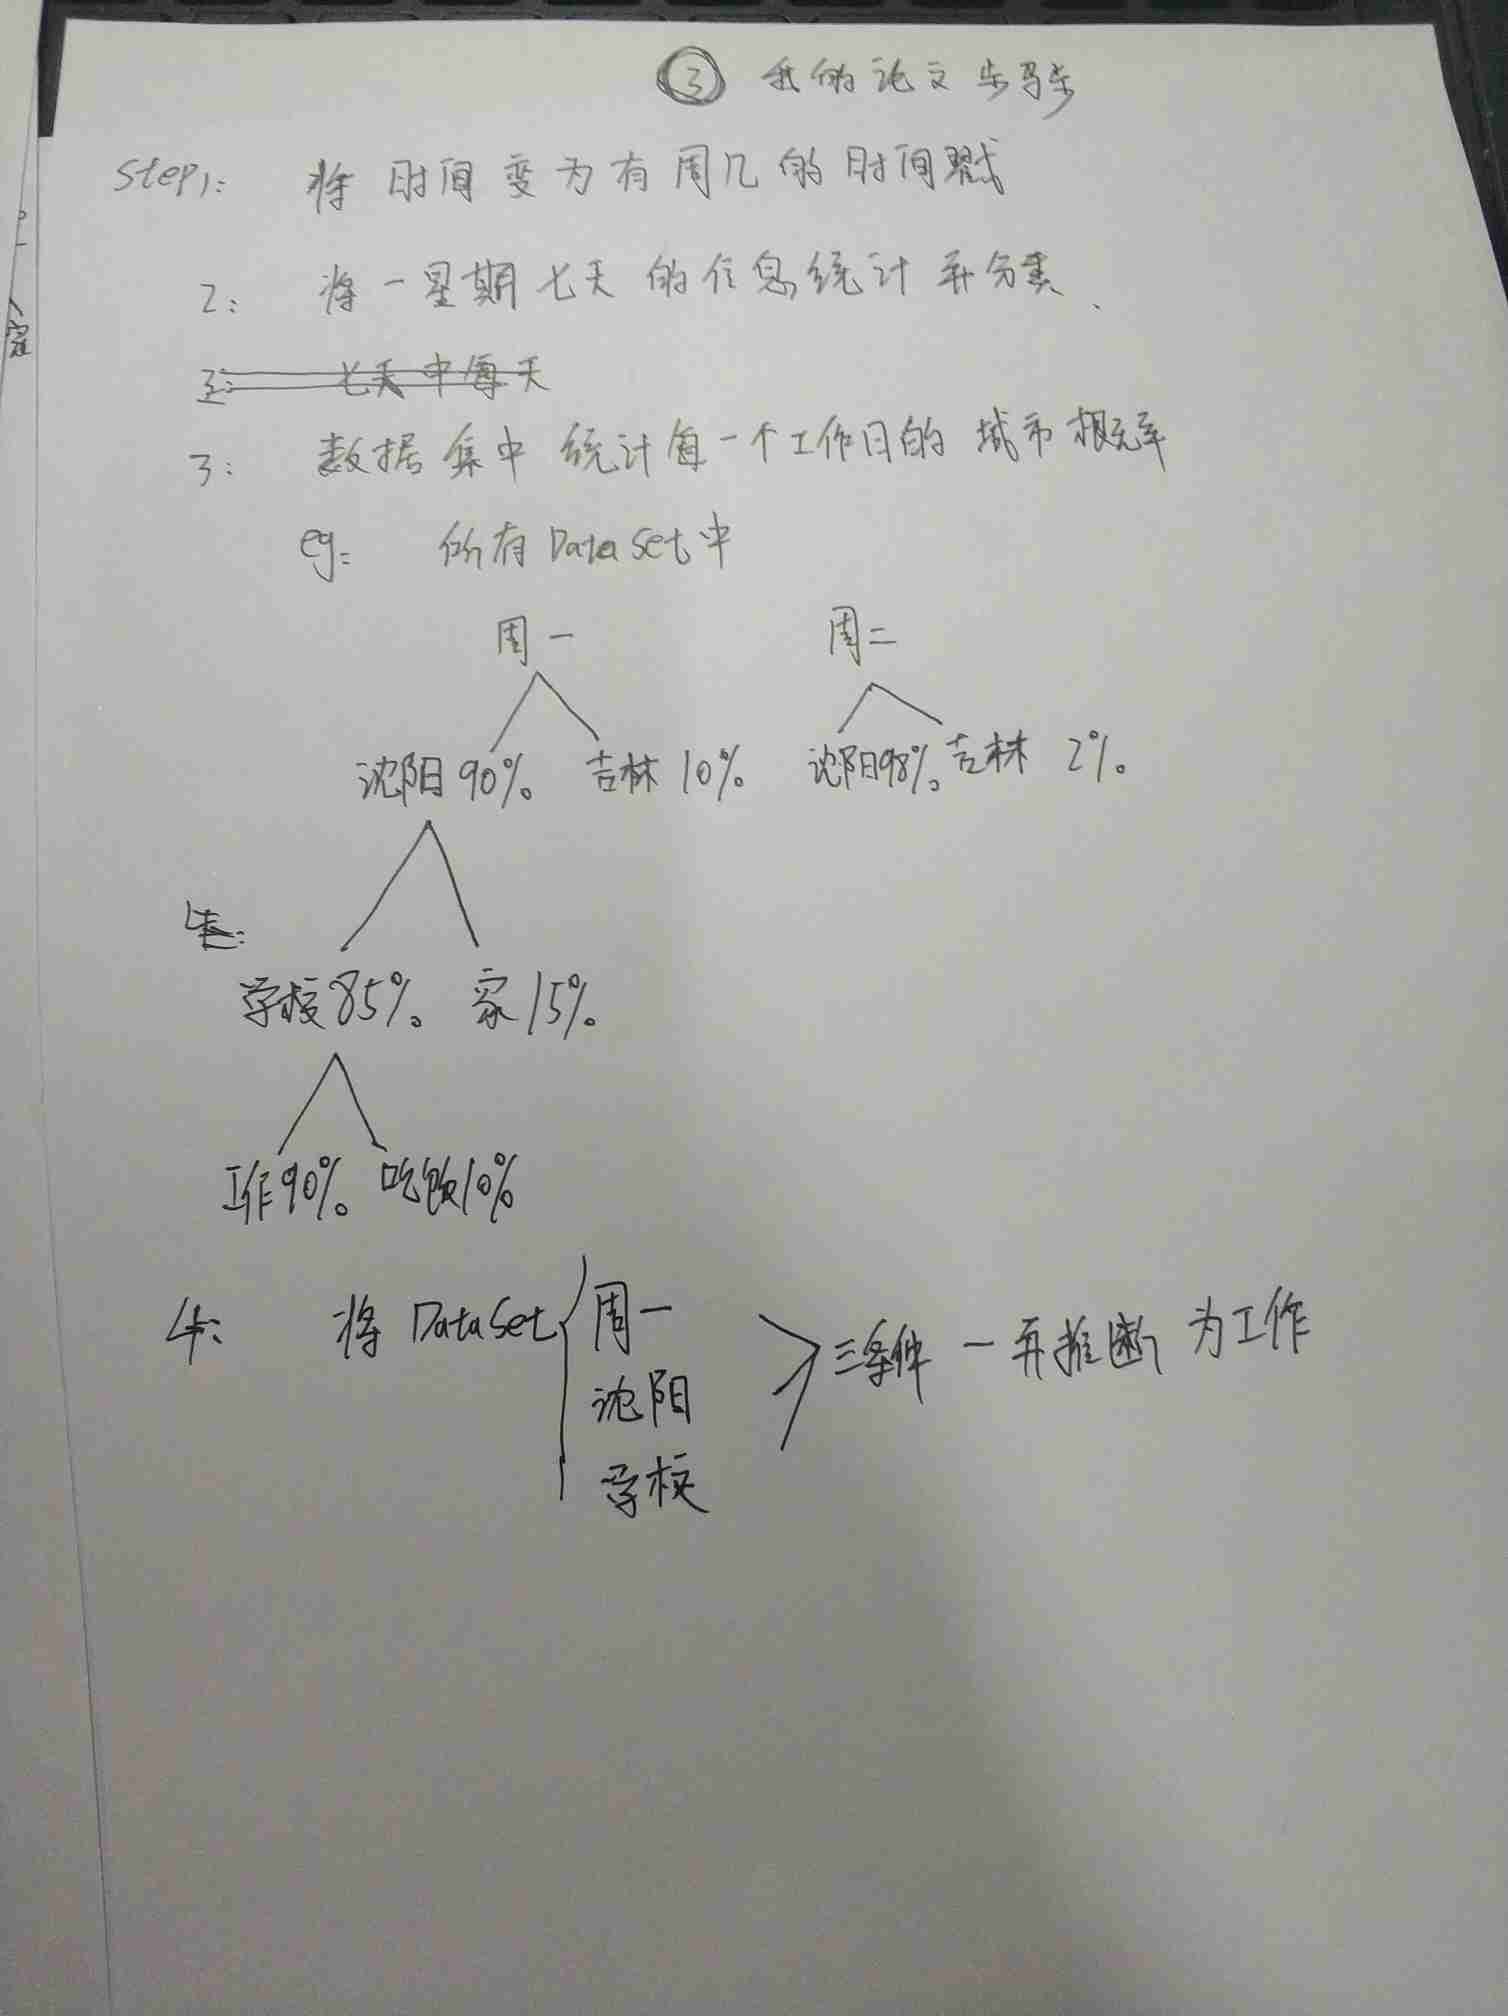 ③ 我的论文步骤
Step1: 将时间变为有周几的时间戳
2: 将一星期七天的信息统计并分类、
3: 七天中每天
3: 数据集中 统计每一个工作日的城市概率
eg: 所有DataSet中
周一 周二
沈阳90% 吉林10% 沈阳98% 吉林 2%
学校85% 家15%
工作90% 吃饭10%
4: 将DataSet { 周一
沈阳
学校
三条件 一再推断 为工作